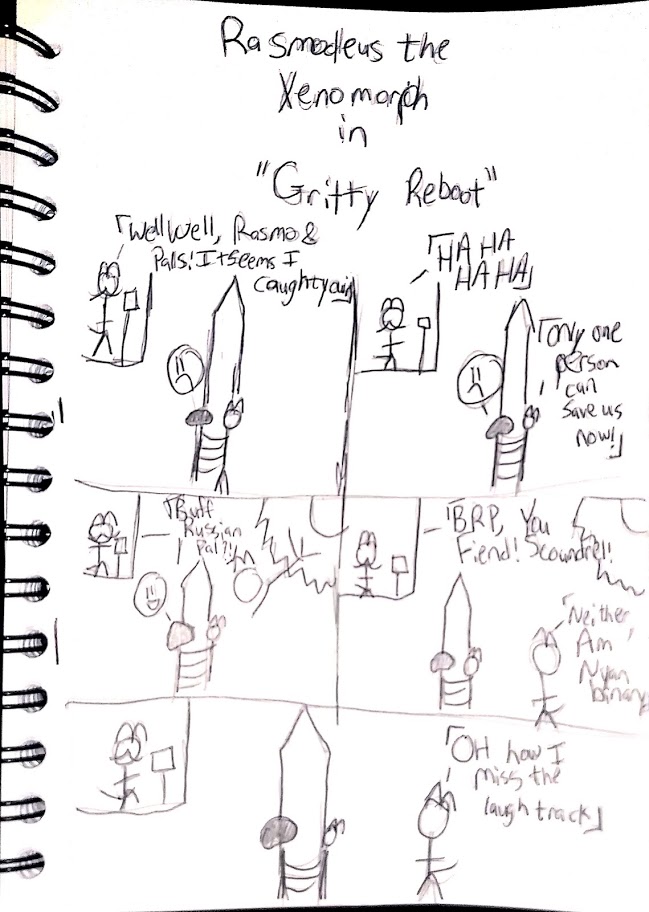 Rasmodeus the
Xenomorph
in
"Gritty Reboot"
「Well Well, Rasmo &
Pals! It Seems I
Caught you」
「HA HA
HA HA」
「Only one
person
can
Save us
now!」
「Buff
Russian
Pal?!」
「BRP, You
Fiend! Scoundrel!
「Neither,
Am
Nyan
binary
「OH how I
miss the
laugh track」